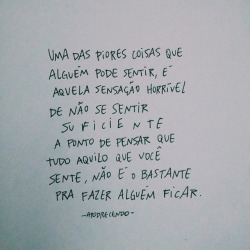 UMA DAS PIORES COISAS QUE
ALGUÉM PODE SENTIR, É
AQUELA SENSAÇÃO HORRÍVEL
DE NÃO SE SENTIR
SUFICIENTE
A PONTO DE PENSAR QUE
TUDO AQUILO QUE VOCÊ
SENTE, NÃO É O BASTANTE
PRA FAZER ALGUÉM FICAR.
-APODRECENDO-